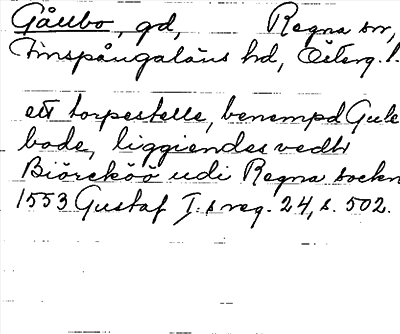 Gållbo, gd, Regna sn,
Finspångaläns hd, Österg. l.
ett torpestelle, benempd Gule
bode, liggiendes vedh
Biörcköö udi Regna sockn
1553 Gustaf I:s reg. 24, s. 502.